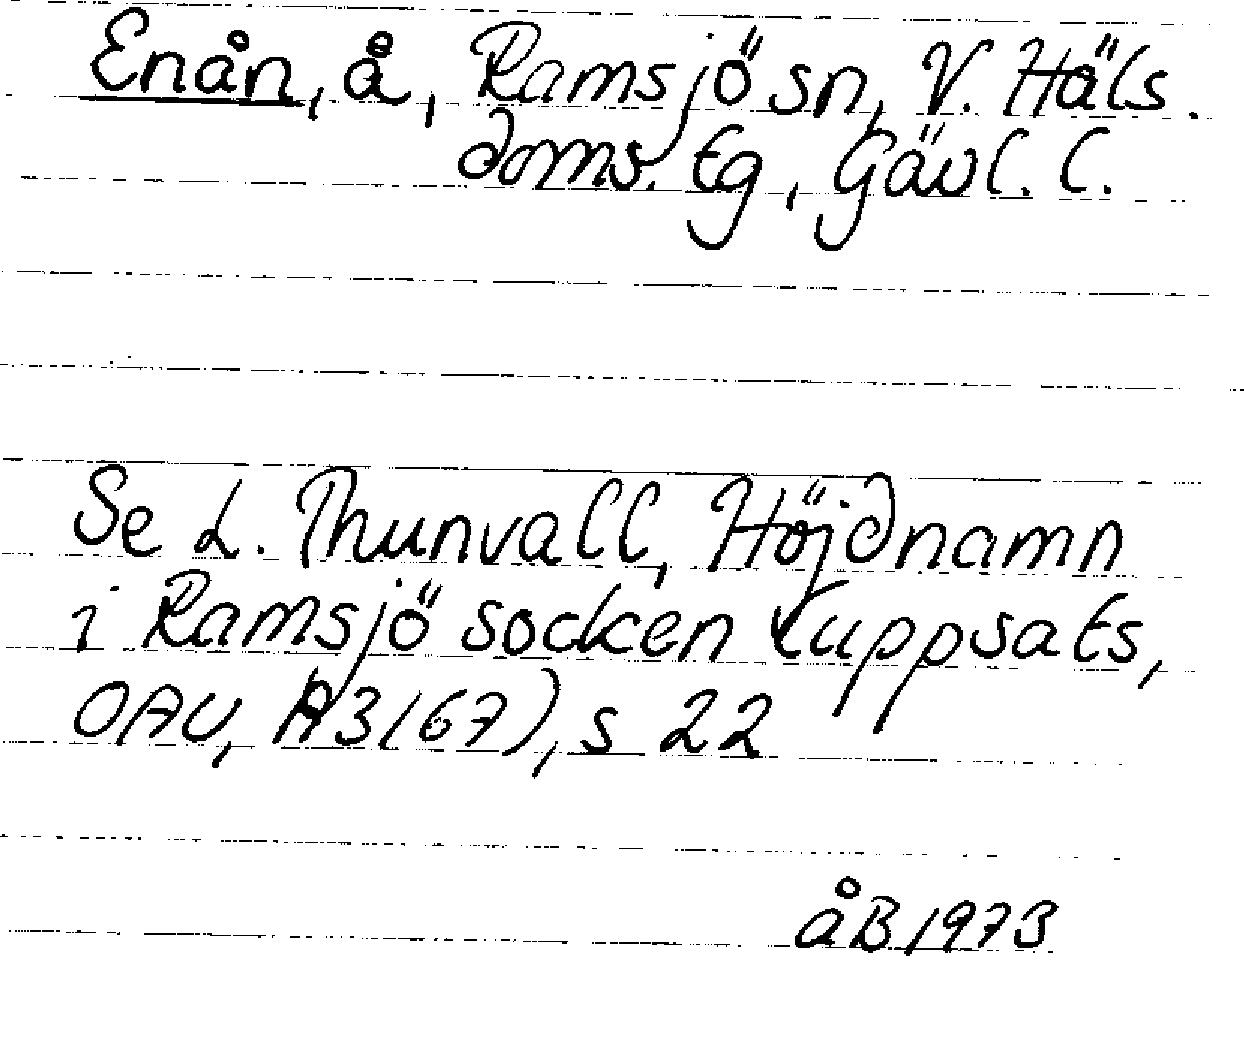 Enån, å, Ramsjö sn, V. Häls.
doms. tg, Gävl. l.
Se L. Thunvall, Höjdnamn
i Ramsjö socken (uppsats,
OAU, A3(67), s 22
åB 1973